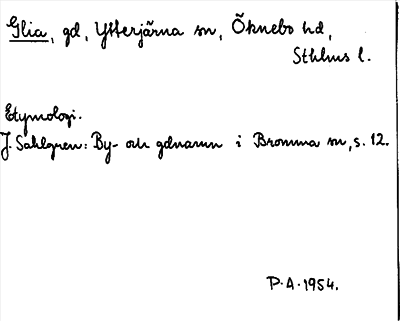 Glia, gd, Ytterjärna sn, Öknebo hd,
Sthlms l.
Etymologi.
J. Sahlgren: By- och gdnamn i Bromma sn, s. 12.
P.A. 1954.